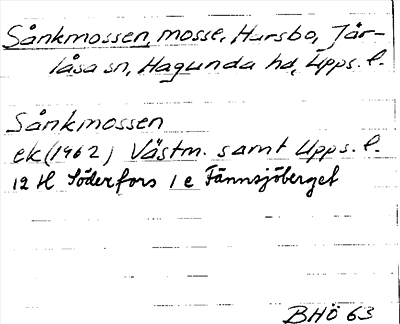 Sånkmossen, mosse, Hursbo, Jär-
låsa sn, Hagunda hd, Upps. l.
Sånkmossen
ek (1962) Västm. samt Upps. l.
12 H Söderfors 1 e Fännsjöberget
BHÖ 63